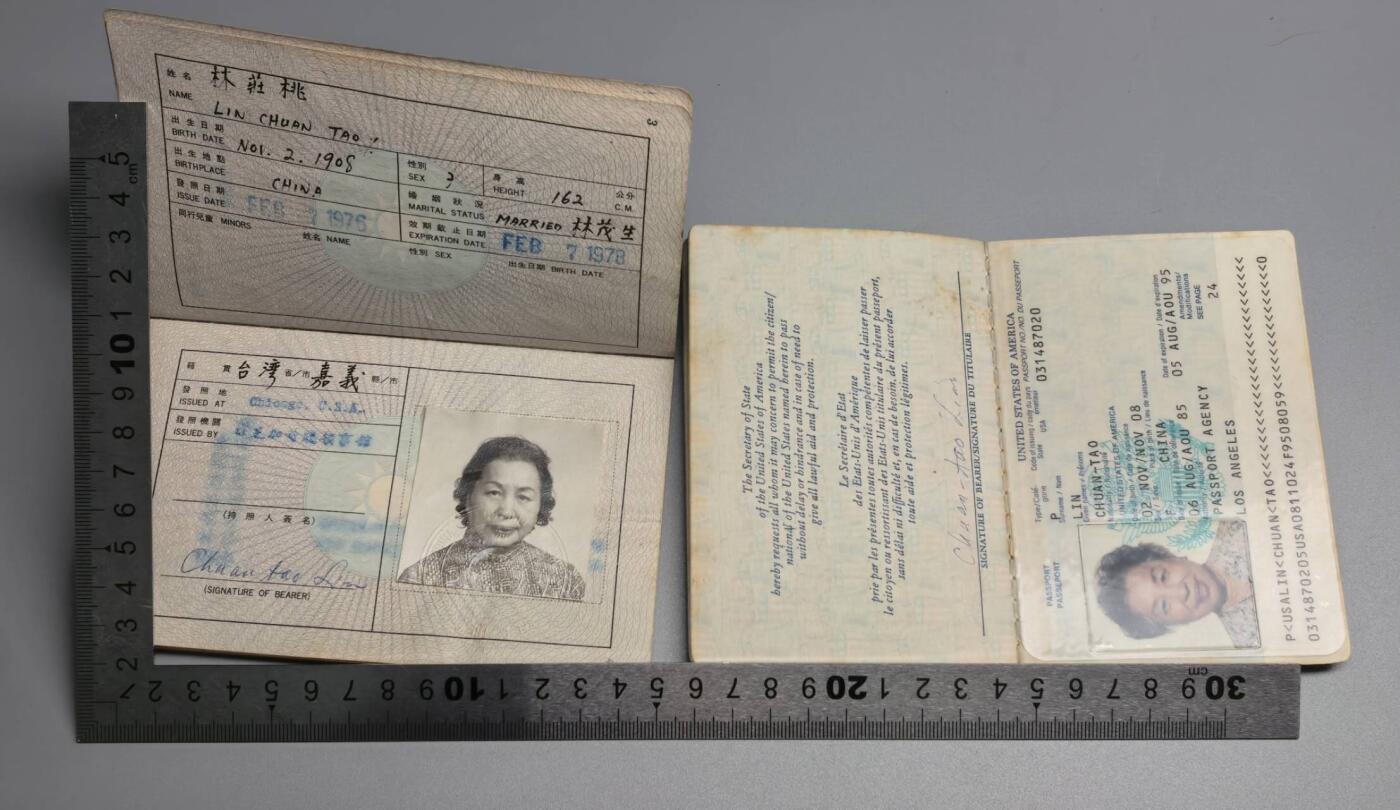 3
姓名 林莊桃
NAME LIN CHUAN TAO
出生日期 BIRTH DATE NOV. 2. 1908
性別 SEX
身高 HEIGHT 162 公分 C.M.
出生地點 BIRTHPLACE CHINA
婚姻狀況 MARITAL STATUS MARRIED 林茂生
發照日期 ISSUE DATE FEB 7 1976
效期截止日期 EXPIRATION DATE FEB 7 1978
同行兒童 MINORS
姓名 NAME
性別 SEX
出生日期 BIRTH DATE
籍貫 台灣 省/市 嘉義 縣/市
發照地 ISSUED AT Chicago, U.S.A.
發照機關 ISSUED BY
(持照人簽名)
Chuan tao Lin
(SIGNATURE OF BEARER)
The Secretary of State
of the United States of America
hereby requests all whom it may concern to permit the citizen/
national of the United States named herein to pass
without delay or hindrance and in case of need to
give all lawful aid and protection.
Le Secrétaire d'Etat
des Etats-Unis d'Amérique
prie par les présentes toutes autorités compétentes de laisser passer
le citoyen ou ressortissant des Etats-Unis titulaire du présent passeport,
sans délai ni difficulté et, en cas de besoin, de lui accorder
toute aide et protection légitimes.
Chuan-tao
SIGNATURE OF BEARER/SIGNATURE DU TITULAIRE
UNITED STATES OF AMERICA
PASSPORT
PASSEPORT
PASSPORT NO./NO. DU PASSEPORT
P
USA
031487020
LIN
CHUAN-TAO
UNITED STATES OF AMERICA
02 NOV/NOV 08
CHINA
06 AUG/AOU 85
Date of expiration / Date d'expiration
05 AUG/AOU 95
PASSPORT AGENCY
Amendments/
Modifications
SEE PAGE
24
LOS ANGELES
P<USALIN<CHUAN<TAO<<<<<<<<<<<<<<<<<<<<<<<<<<
0314870205USA0811024F9508059<<<<<<<<<<<<<<<0
5
cm
4
3
2
1
10
9
8
7
6
5
4
3
2
2 3 4 5 6 7 8 9 10 1 2 3 4 5 6 7 8 9 20 1 2 3 4 5 6 7 8 9 30
cm